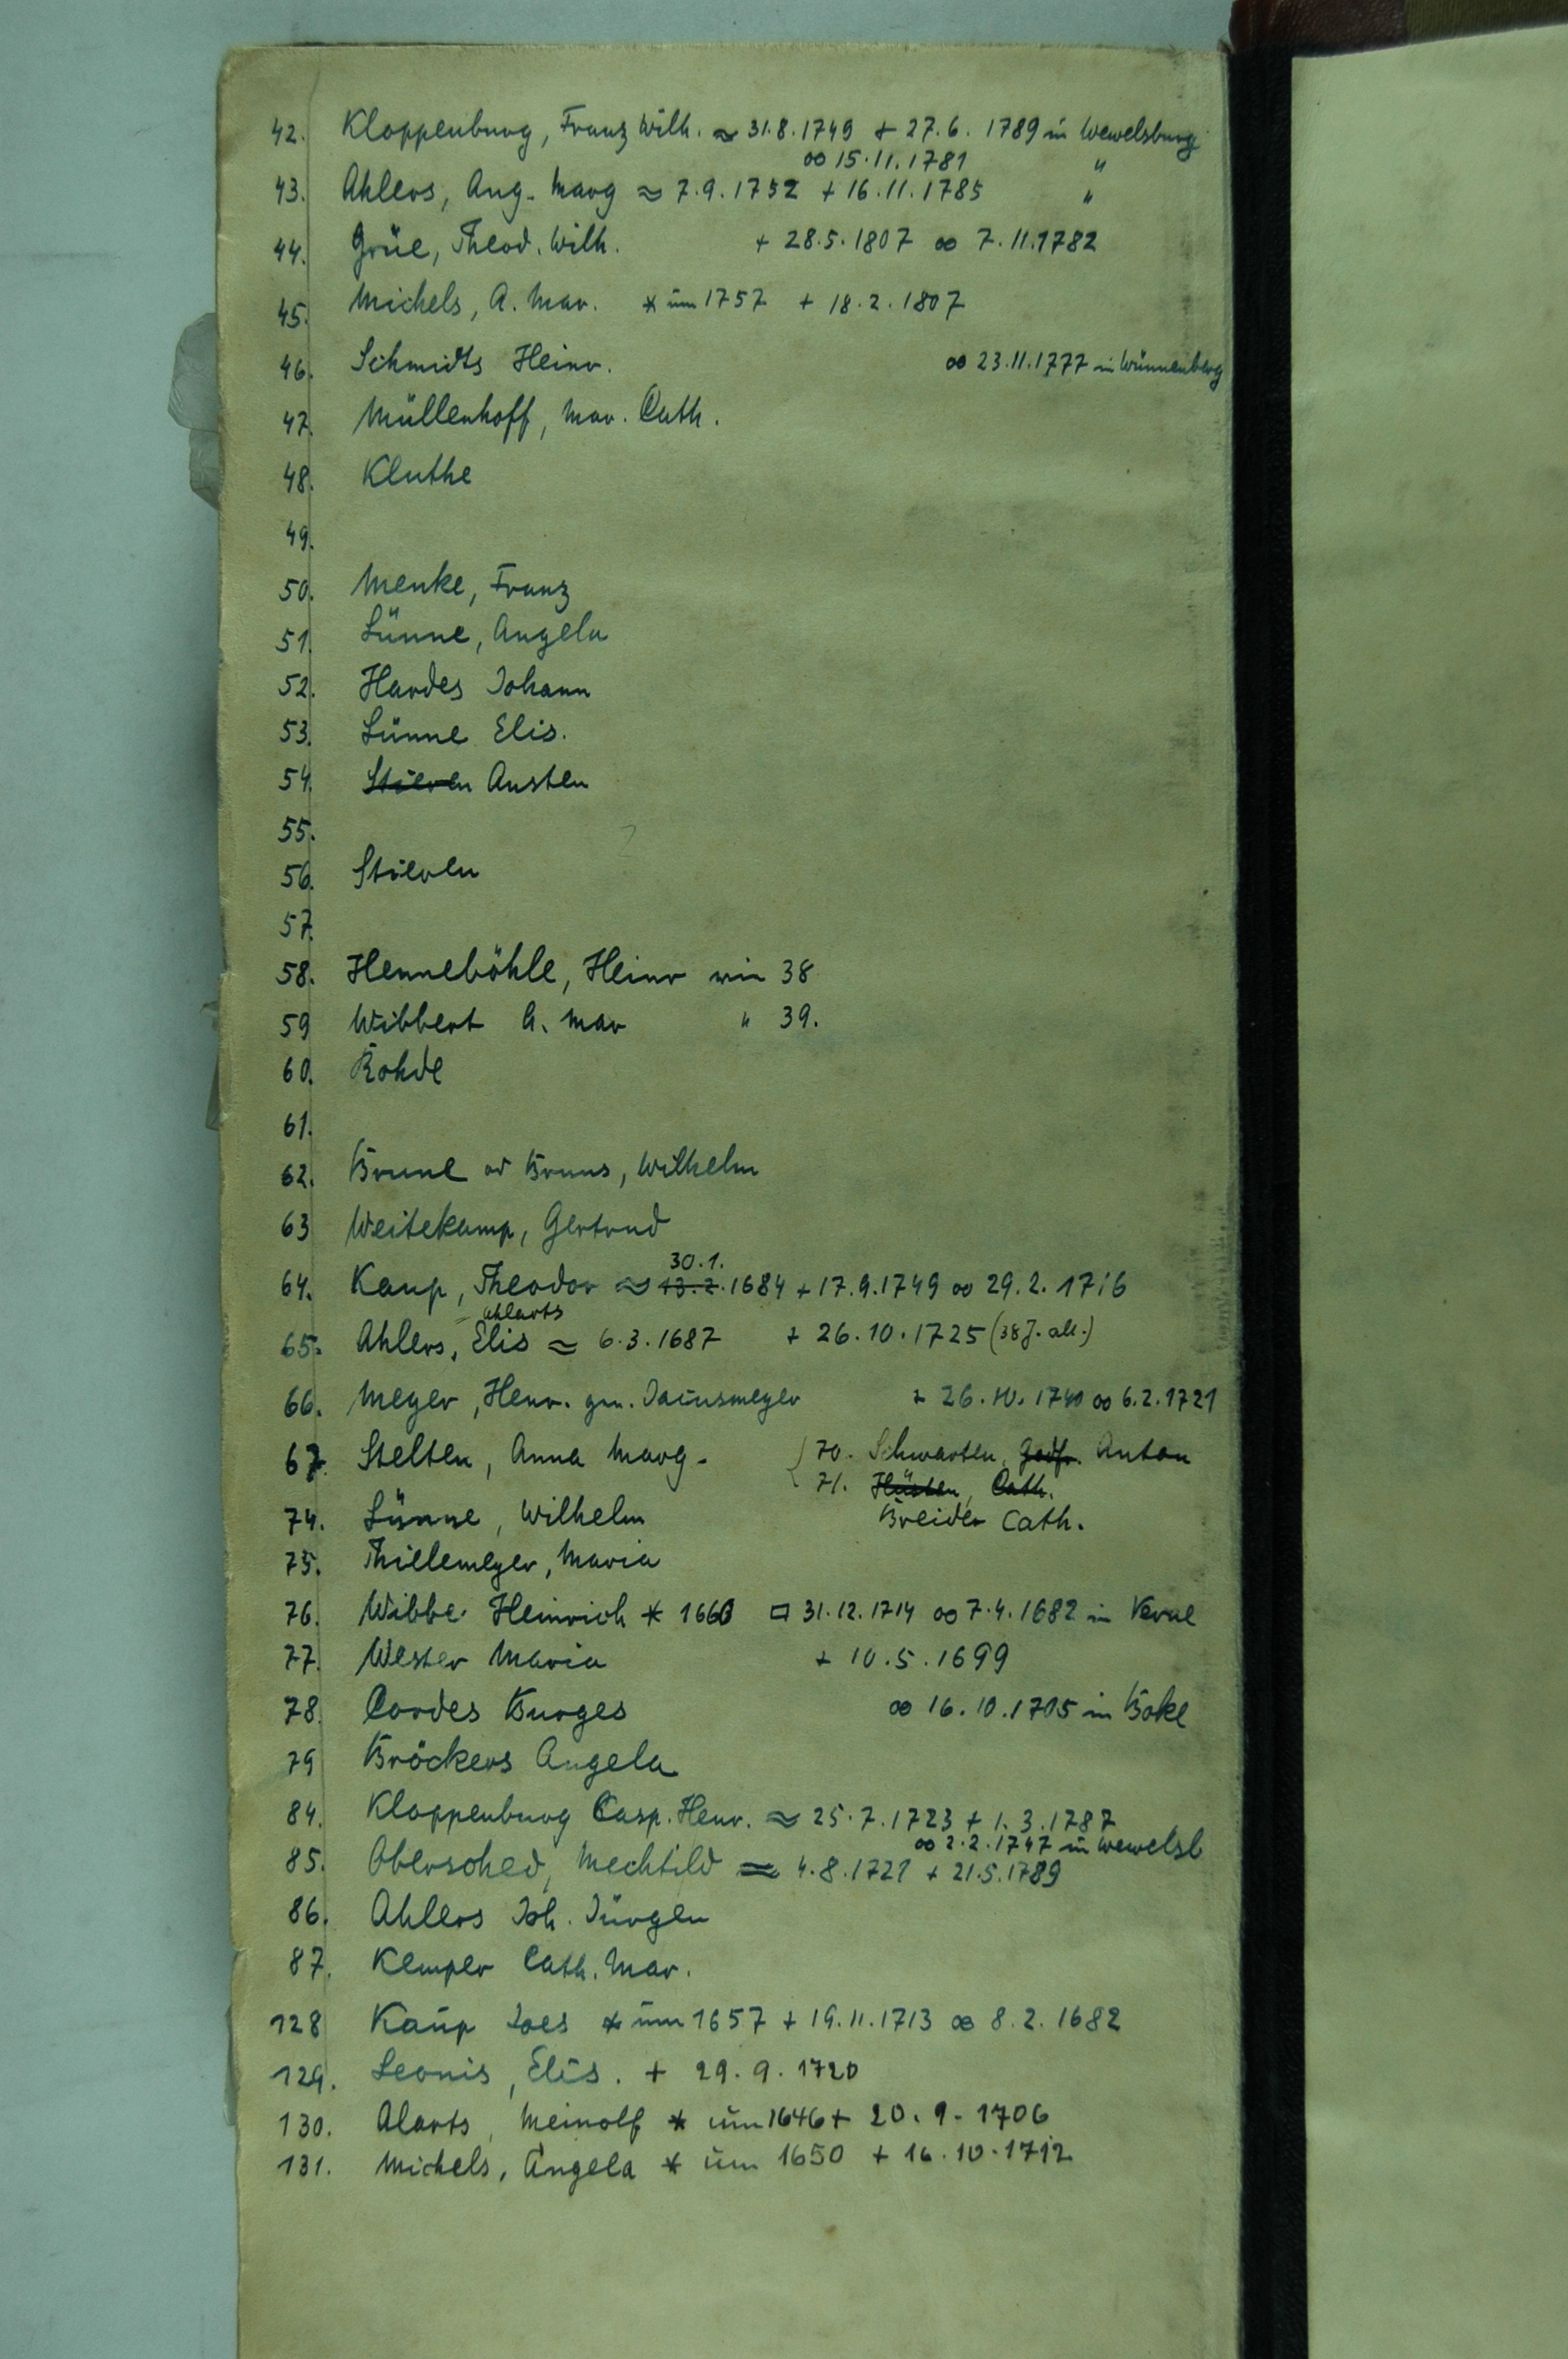 42. Kloppenburg, Franz Wilh. ≈ 31.8.1749 + 27.6. 1789 in Wewelsburg
∞ 15.11.1781 "
43. Ahlers, Ang. Marg ≈ 7.9.1752 + 16.11.1785 "
44. Grüe, Theod. Wilh. + 28.5.1807 ∞ 7.11.1782
45. Michels, A. Mar. * um 1757 + 18.2.1807
46. Schmidts Heinr. ∞ 23.11.1777 in Wünnenberg
47. Müllenhoff, Mar. Cath.
48. Kluthe
49.
50. Menke, Franz
51. Lünne, Angela
52. Hardes Johann
53. Lünne Elis.
54. Stieren Austen
55.
56. Stieren
57.
58. Henneböhle, Heinr wie 38
59 Wibbert A. Mar " 39.
60. Rohde
61.
62. Brune od Bruns, Wilhelm
63 Weitekamp, Gertrud
30.1.
64. Kaup, Theodor ≈ 13.2.1684 + 17.9.1749 ∞ 29.2.1716
Ahlarts
65. Ahlers, Elis ≈ 6.3.1687 + 26.10.1725 (38 J. alt.)
66. Meyer, Henr. gen. + 26.10.1740 ∞ 6.2.1721
67. Stelten, Anna Marg. { 70. Schwarten, Godfr. Anton
71. Hüsten, Cath.
74. Lünne, Wilhelm Breider Cath.
75. Thillemeyer, Maria
76. Wibbe Heinrich * 1660 □ 31.12.1714 ∞ 7.4.1682 in Verne
77. Wester Maria + 10.5.1699
78. Cordes Burges ∞ 16.10.1705 in Boke
79 Bröckers Angela
84. Kloppenburg Casp. Henr. ≈ 25.7.1723 + 1.3.1787
∞ 2.2.1747 in Wewelsb
85. Obersched, Mechtild ≈ 4.8.1721 + 21.5.1789
86. Ahlers Joh. Jürgen
87. Kemper Cath. Mar.
128 Kaup Joes * um 1657 + 19.11.1713 ∞ 8.2.1682
129. Leonis, Elis. + 29.9.1720
130. Alarts, Meinolf * um 1646 + 20.9.1706
131. Michels, Angela * um 1650 + 16.10.1712